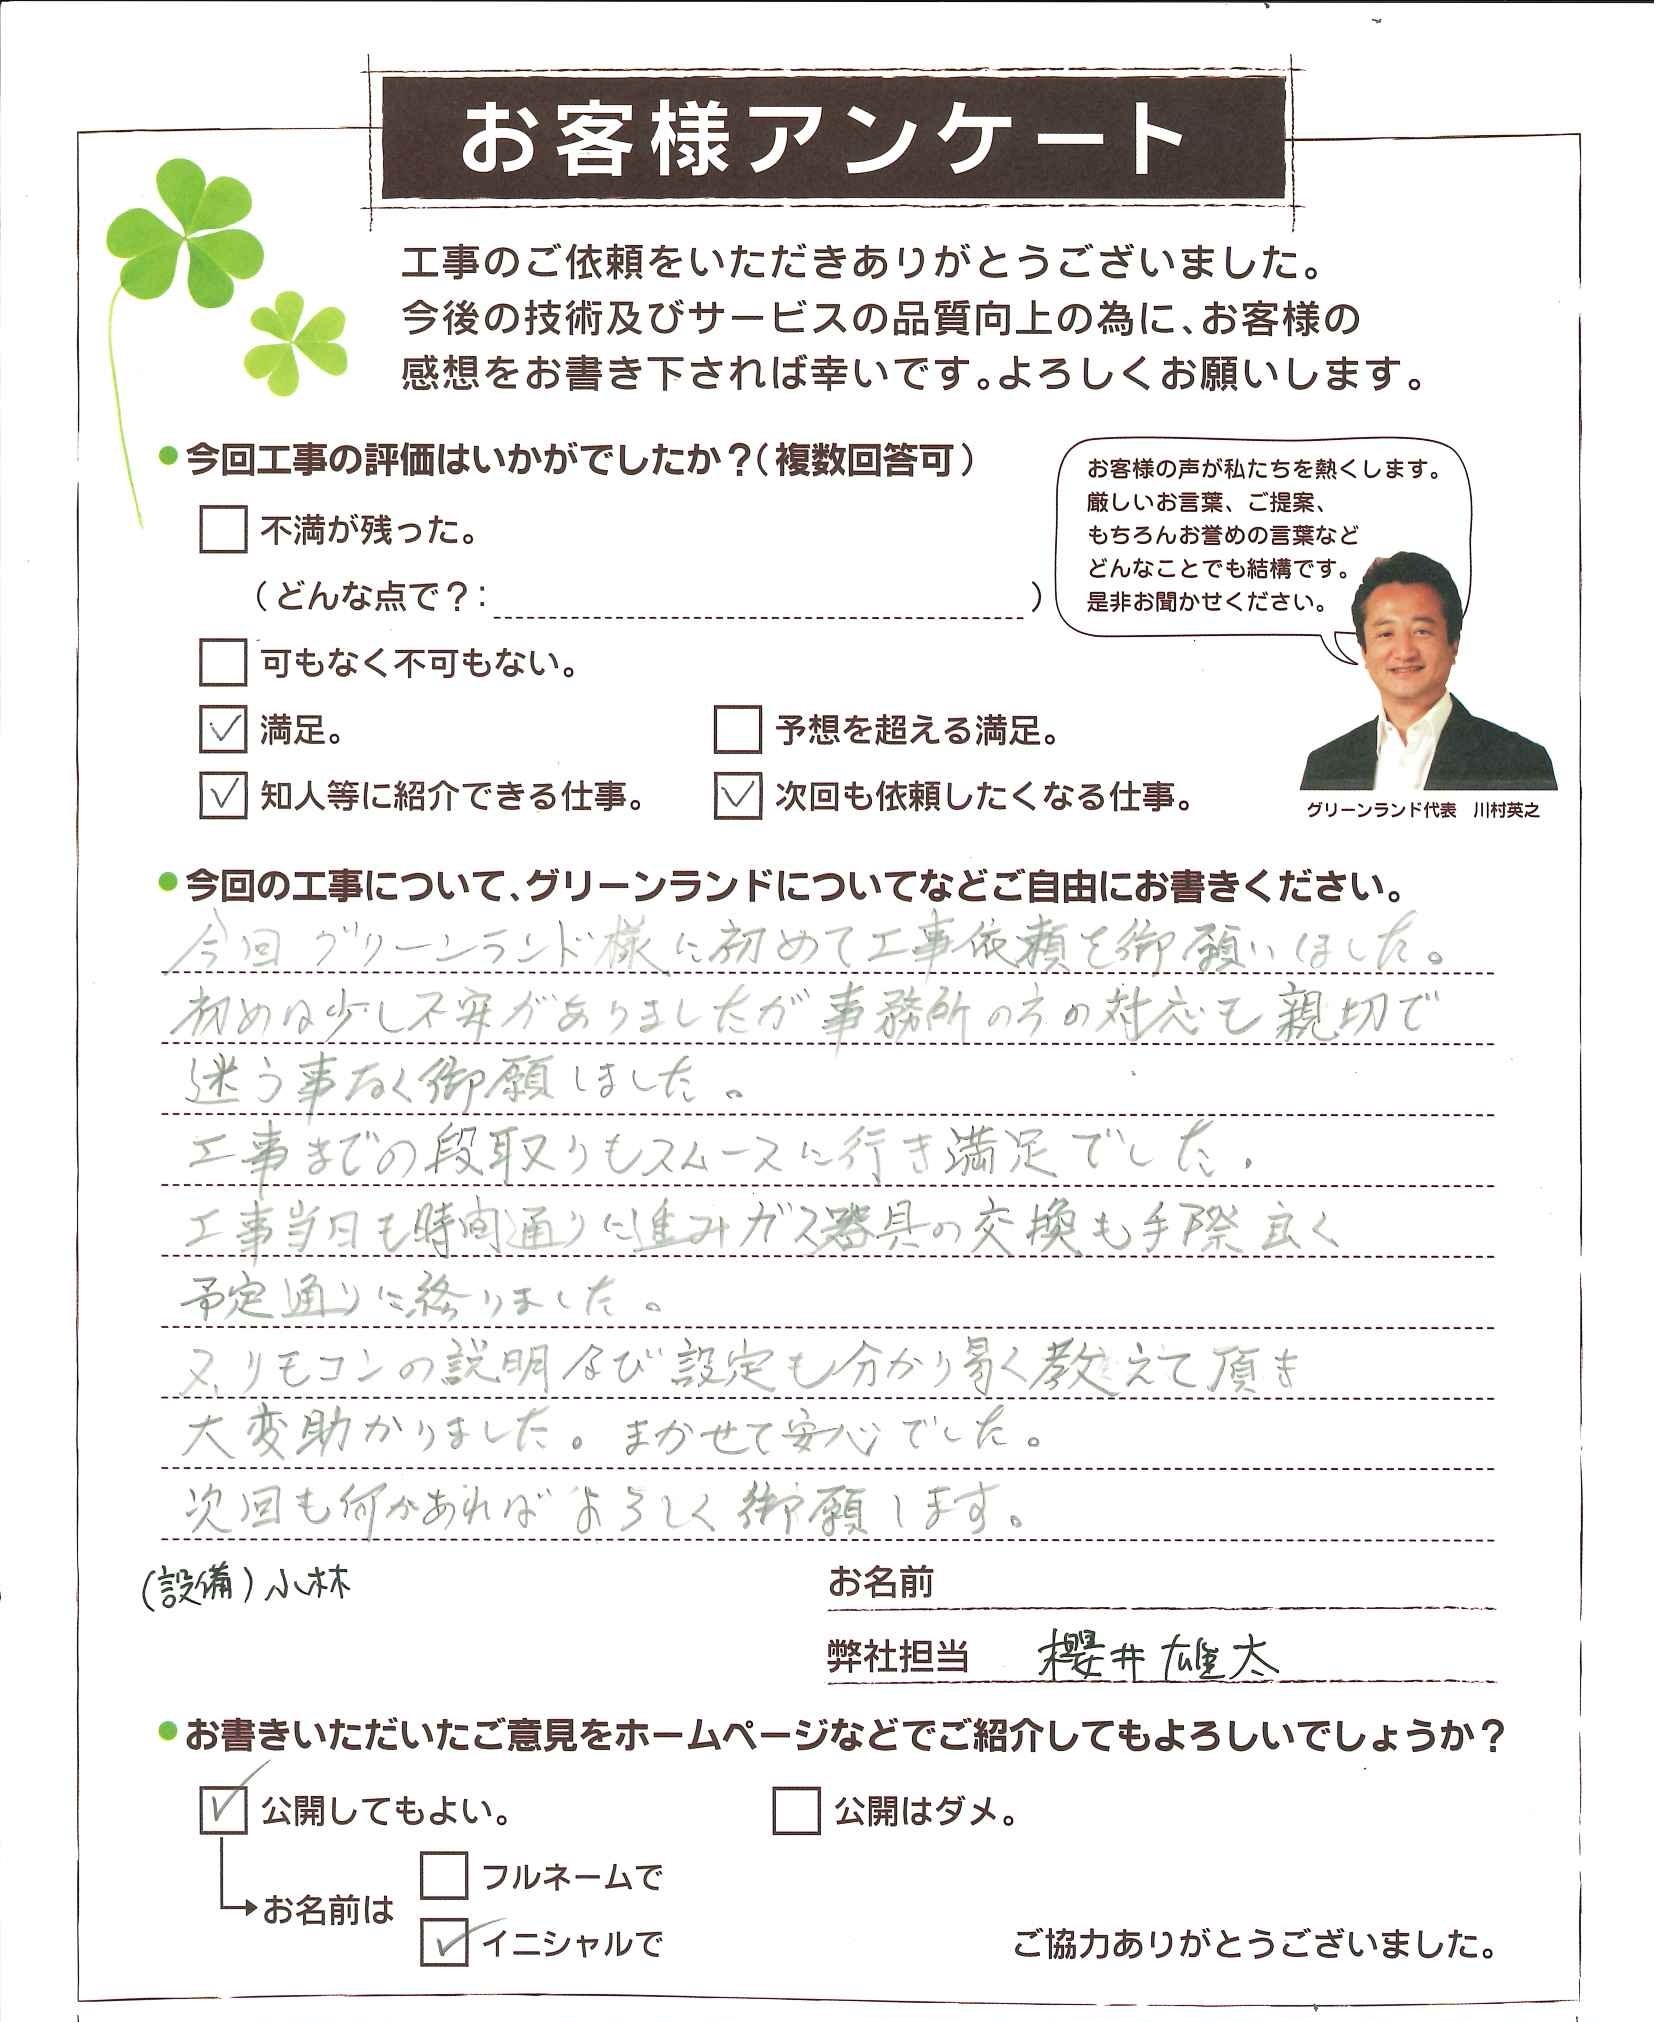 お客様アンケート
工事のご依頼をいただきありがとうございました。
今後の技術及びサービスの品質向上の為に、お客様の
感想をお書き下されば幸いです。よろしくお願いします。
●今回工事の評価はいかがでしたか？（複数回答可）
不満が残った。
（どんな点で？：　）
可もなく不可もない。
満足。　予想を超える満足。
知人等に紹介できる仕事。　次回も依頼したくなる仕事。
お客様の声が私たちを熱くします。
厳しいお言葉、ご提案、
もちろんお誉めの言葉など
どんなことでも結構です。
是非お聞かせください。
グリーンランド代表　川村英之
●今回の工事について、グリーンランドについてなどご自由にお書きください。
今回グリーンランド様に初めて工事依頼を御願いしました。
初めは少し不安がありましたが事務所の方の対応も親切で
迷う事なく御願しました。
工事までの段取りもスムースに行き満足でした。
工事当日も時間通りに進みガス器具の交換も手際良く
予定通りに終りました。
又、リモコンの説明及び設定も分かり易く教えて頂き
大変助かりました。まかせて安心でした。
次回も何かあればよろしく御願します。
(設備)小林
お名前
弊社担当　櫻井雄太
●お書きいただいたご意見をホームページなどでご紹介してもよろしいでしょうか？
公開してもよい。　公開はダメ。
お名前は
フルネームで
イニシャルで
ご協力ありがとうございました。